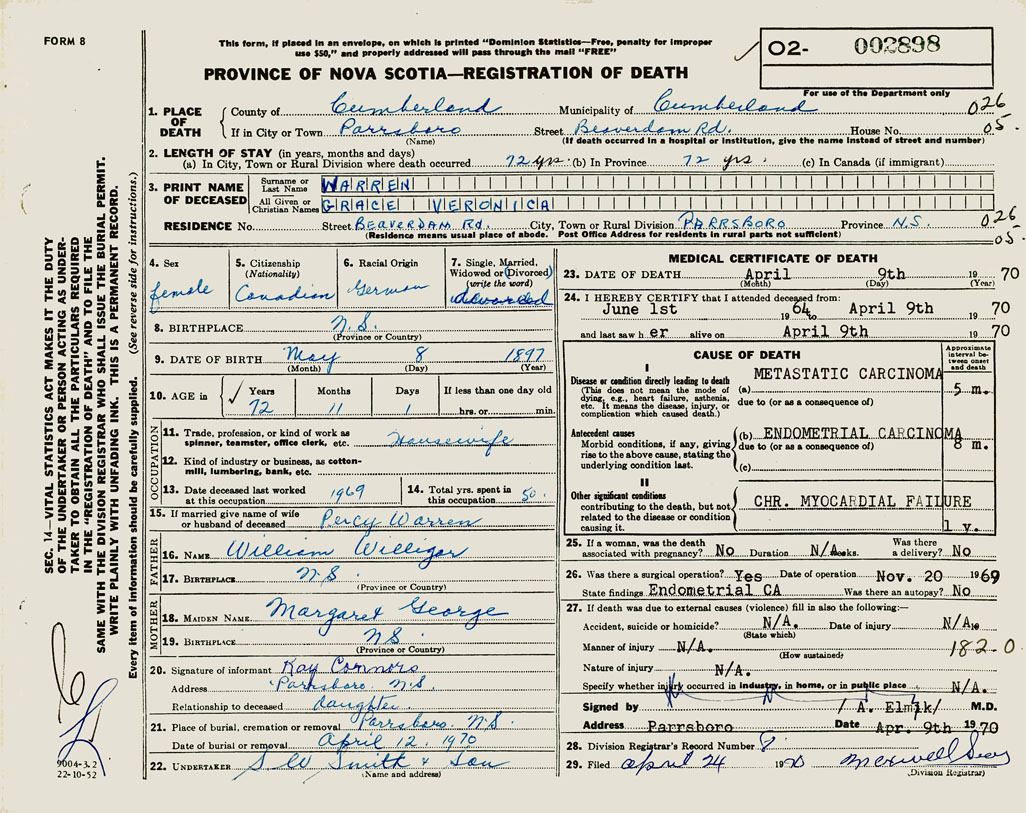 FORM 8
This form, if placed in an envelope, on which is printed "Dominion Statistics—Free, penalty for improper
use $50," and properly addressed will pass through the mail "FREE"
PROVINCE OF NOVA SCOTIA—REGISTRATION OF DEATH
02- 002898
For use of the Department only
1. PLACE OF DEATH
County of Cumberland Municipality of Cumberland 026
If in City or Town Parrsboro Street Beaverdam Rd. House No. 05.
(Name) (If death occurred in a hospital or institution, give the name instead of street and number)
2. LENGTH OF STAY (in years, months and days)
(a) In City, Town or Rural Division where death occurred 72 yrs. (b) In Province 72 yrs. (c) In Canada (if immigrant)
3. PRINT NAME OF DECEASED
Surname or Last Name WARREN
All Given or Christian Names GRACE VERONICA
RESIDENCE No. Street BEAVERDAM Rd. City, Town or Rural Division PARRSBORO Province N.S. 026
(Residence means usual place of abode. Post Office Address for residents in rural parts not sufficient) 05.
4. Sex female
5. Citizenship (Nationality) Canadian
6. Racial Origin German
7. Single, Married, Widowed or (Divorced) (write the word) divorced
8. BIRTHPLACE N.S.
(Province or Country)
9. DATE OF BIRTH May 8 1897
(Month) (Day) (Year)
10. AGE in Years Months Days If less than one day old
72 11 1 hrs. or min.
OCCUPATION
11. Trade, profession, or kind of work as
spinner, teamster, office clerk, etc. Housewife
12. Kind of industry or business, as cotton-
mill, lumbering, bank, etc.
13. Date deceased last worked
at this occupation 1969
14. Total yrs. spent in
this occupation 50.
15. If married give name of wife
or husband of deceased Percy Warren
FATHER
16. NAME William Willigar
17. BIRTHPLACE N.S.
(Province or Country)
MOTHER
18. MAIDEN NAME Margaret George
19. BIRTHPLACE N.S.
(Province or Country)
20. Signature of informant Kay Connors
Address Parrsboro N.S.
Relationship to deceased daughter
21. Place of burial, cremation or removal Parrsboro. N.S.
Date of burial or removal April 12, 1970
22. UNDERTAKER S. W. Smith & Son
(Name and address)
MEDICAL CERTIFICATE OF DEATH
23. DATE OF DEATH April 9th 19 70
(Month) (Day) (Year)
24. I HEREBY CERTIFY that I attended deceased from:
June 1st 19 64 to April 9th 19 70
and last saw h er alive on April 9th 19 70
CAUSE OF DEATH
Approximate interval between onset and death
I
Disease or condition directly leading to death
(This does not mean the mode of
dying, e.g., heart failure, asthenia,
etc. It means the disease, injury, or
complication which caused death.)
(a) METASTATIC CARCINOMA 5 m.
due to (or as a consequence of)
Antecedent causes
Morbid conditions, if any, giving
rise to the above cause, stating the
underlying condition last.
(b) ENDOMETRIAL CARCINOMA
due to (or as a consequence of) 8 m.
(c)
II
Other significant conditions
contributing to the death, but not
related to the disease or condition
causing it.
CHR. MYOCARDIAL FAILURE
1 y.
25. If a woman, was the death
associated with pregnancy? No Duration N/A weeks. Was there
a delivery? No
26. Was there a surgical operation? Yes Date of operation Nov. 20 1969
State findings Endometrial CA Was there an autopsy? No
27. If death was due to external causes (violence) fill in also the following:—
Accident, suicide or homicide? N/A. Date of injury N/A.
(State which)
Manner of injury N/A. 182-0
(How sustained)
Nature of injury N/A.
Specify whether injury occurred in industry, in home, or in public place N/A.
Signed by / A. Elmik/ M.D.
Address Parrsboro Date Apr. 9th 1970
28. Division Registrar's Record Number 8.
29. Filed April 24 1970 Maxwell
(Division Registrar)
SEC. 14—VITAL STATISTICS ACT MAKES IT THE DUTY
OF THE UNDERTAKER OR PERSON ACTING AS UNDER-
TAKER TO OBTAIN ALL THE PARTICULARS REQUIRED
IN THE "REGISTRATION OF DEATH" AND TO FILE THE
SAME WITH THE DIVISION REGISTRAR WHO SHALL ISSUE THE BURIAL PERMIT.
WRITE PLAINLY WITH UNFADING INK. THIS IS A PERMANENT RECORD.
Every item of information should be carefully supplied. (See reverse side for instructions.)
9004-3.2
22-10-52